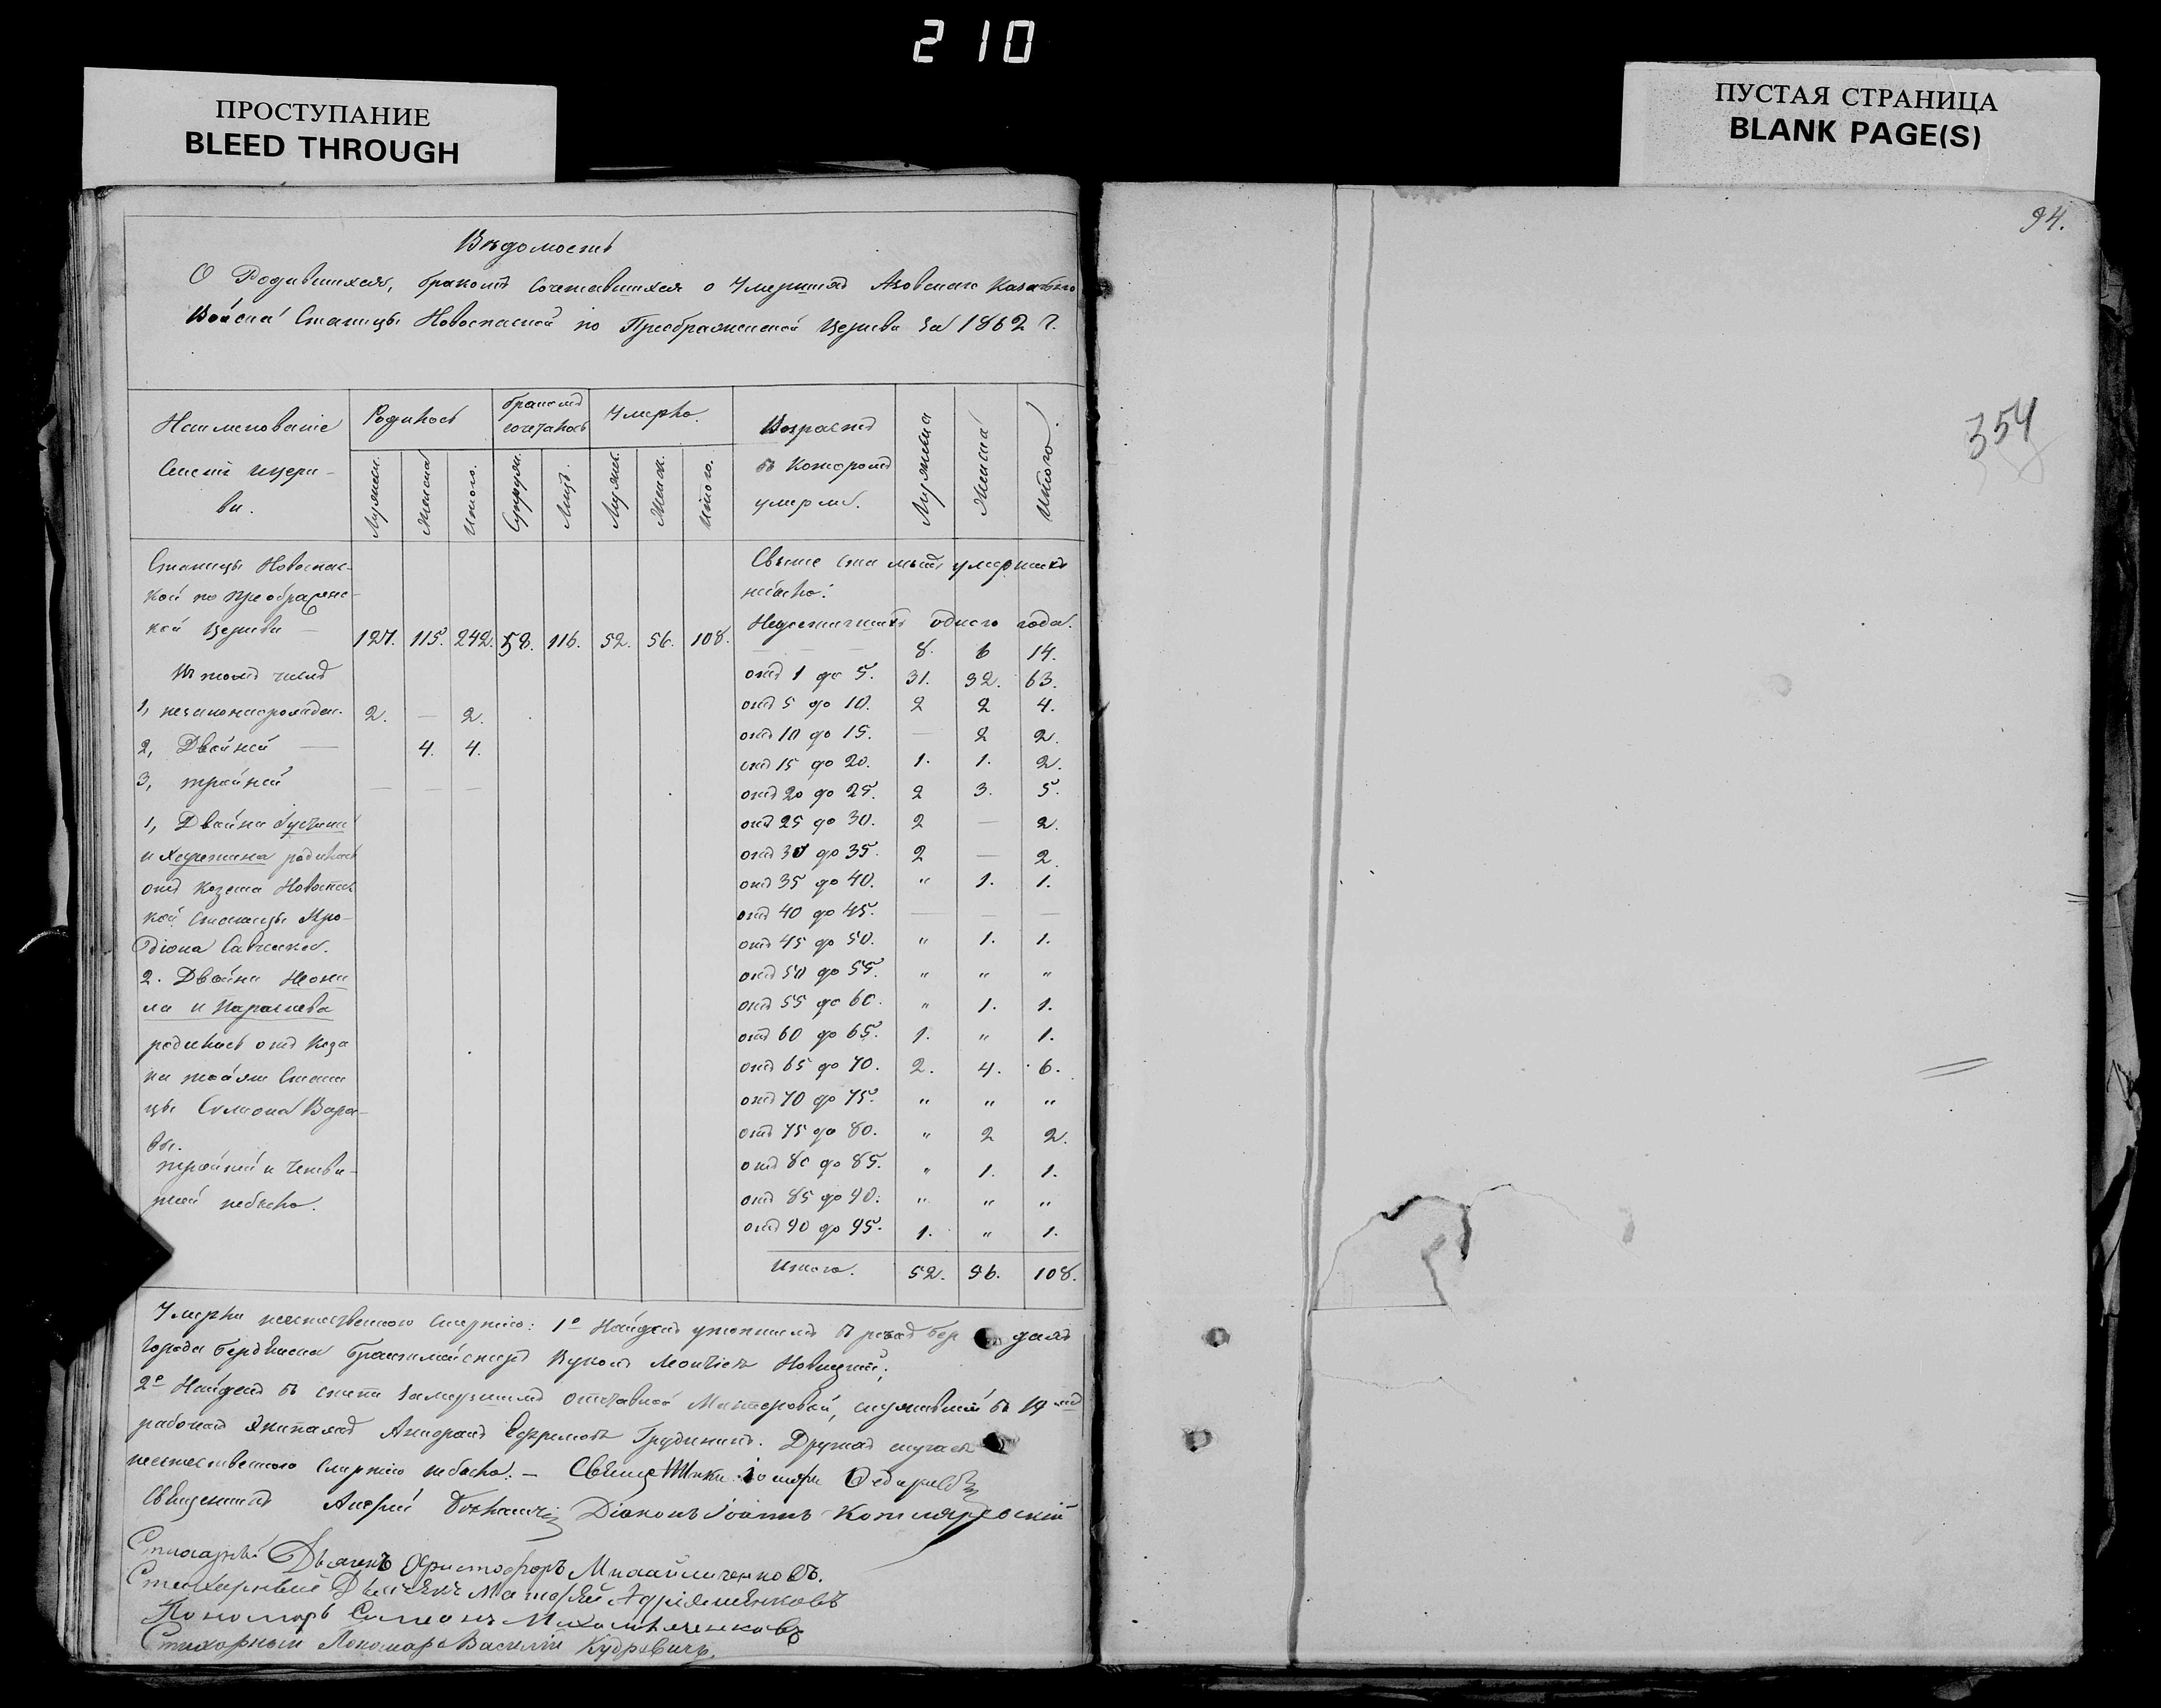 210
ПРОСТУПАНИЕ
BLEED THROUGH
ПУСТАЯ СТРАНИЦА
BLANK PAGE(S)
Вѣдомость
О Родившихся, бракомъ сочетавшихся о Умершихъ Азовскаго Казачьяго
Войска Станицы Новоспаской по Преображенской Церкви за 1862 г.
Наименованіе
церк-
ви.
Родилось
бракомъ
сочеталось
Умерло.
Возрастъ
въ которомъ
умерли.
Мужска
Женска
Итого.
Мужеск.
Женска
Итого.
Супруж.
Лицъ.
Мужеск.
Женск.
Итого.
Станицы Новоспас-
кой по Преображенс-
кой Церкви — 127. 115. 242. 58. 116. 52. 56. 108.
Въ томъ числѣ
1, незаконнорожден. 2. — 2.
2, Двойней — 4. 4.
3, тройней — — —
1, Двойни Іустина
и Харитина родилось
отъ козака Новоспас
кой Станицы Иро-
діона Савченка.
2. Двойни Неони
ла и Параскева
родилось отъ Коза
ка той же Стани
цы Симона Вара-
вы.
тройней и четве-
рней небыло.
Свыше ста лѣтъ умершихъ
небыло.
Недостигшихъ одного года.
— — — 8. 6 14.
отъ 1 до 5. 31. 32. 63.
отъ 5 до 10. 2 2 4.
отъ 10 до 15. — 2 2.
отъ 15 до 20. 1. 1. 2.
отъ 20 до 25. 2 3. 5.
отъ 25 до 30. 2 — 2.
отъ 30 до 35. 2 — 2.
отъ 35 до 40. " 1. 1.
отъ 40 до 45. — — —
отъ 45 до 50. " 1. 1.
отъ 50 до 55. " " "
отъ 55 до 60. " 1. 1.
отъ 60 до 65. 1. " 1.
отъ 65 до 70. 2. 4. 6.
отъ 70 до 75. " " "
отъ 75 до 80. " 2 2.
отъ 80 до 85. " 1. 1.
отъ 85 до 90. " " "
отъ 90 до 95. 1. " 1.
Итого. 52. 56. 108.
Умерли неестественною смертію: 1е Найденъ утопшимъ въ
города Бердянска Новицкій;
2е Найденъ въ степи замерзшимъ отставной Мастеровой, служившій въ
рабочемъ экипажѣ Ефремовъ Грудининъ. Другихъ случаевъ
неестественною смертію небыло. —
Священникъ Діаконъ Іоаннъ Котляревскій
Стихарный Дьячекъ Христофоръ Михайличенковъ.
Стихарный Дьячекъ Матфей Адріяшенковъ
Пономарь Симеонъ Михайличенковъ
Стихарный Пономарь Василій Кудревичъ.
94.
354